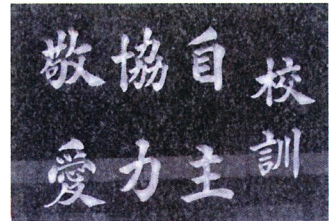 校訓
自主
協力
敬愛